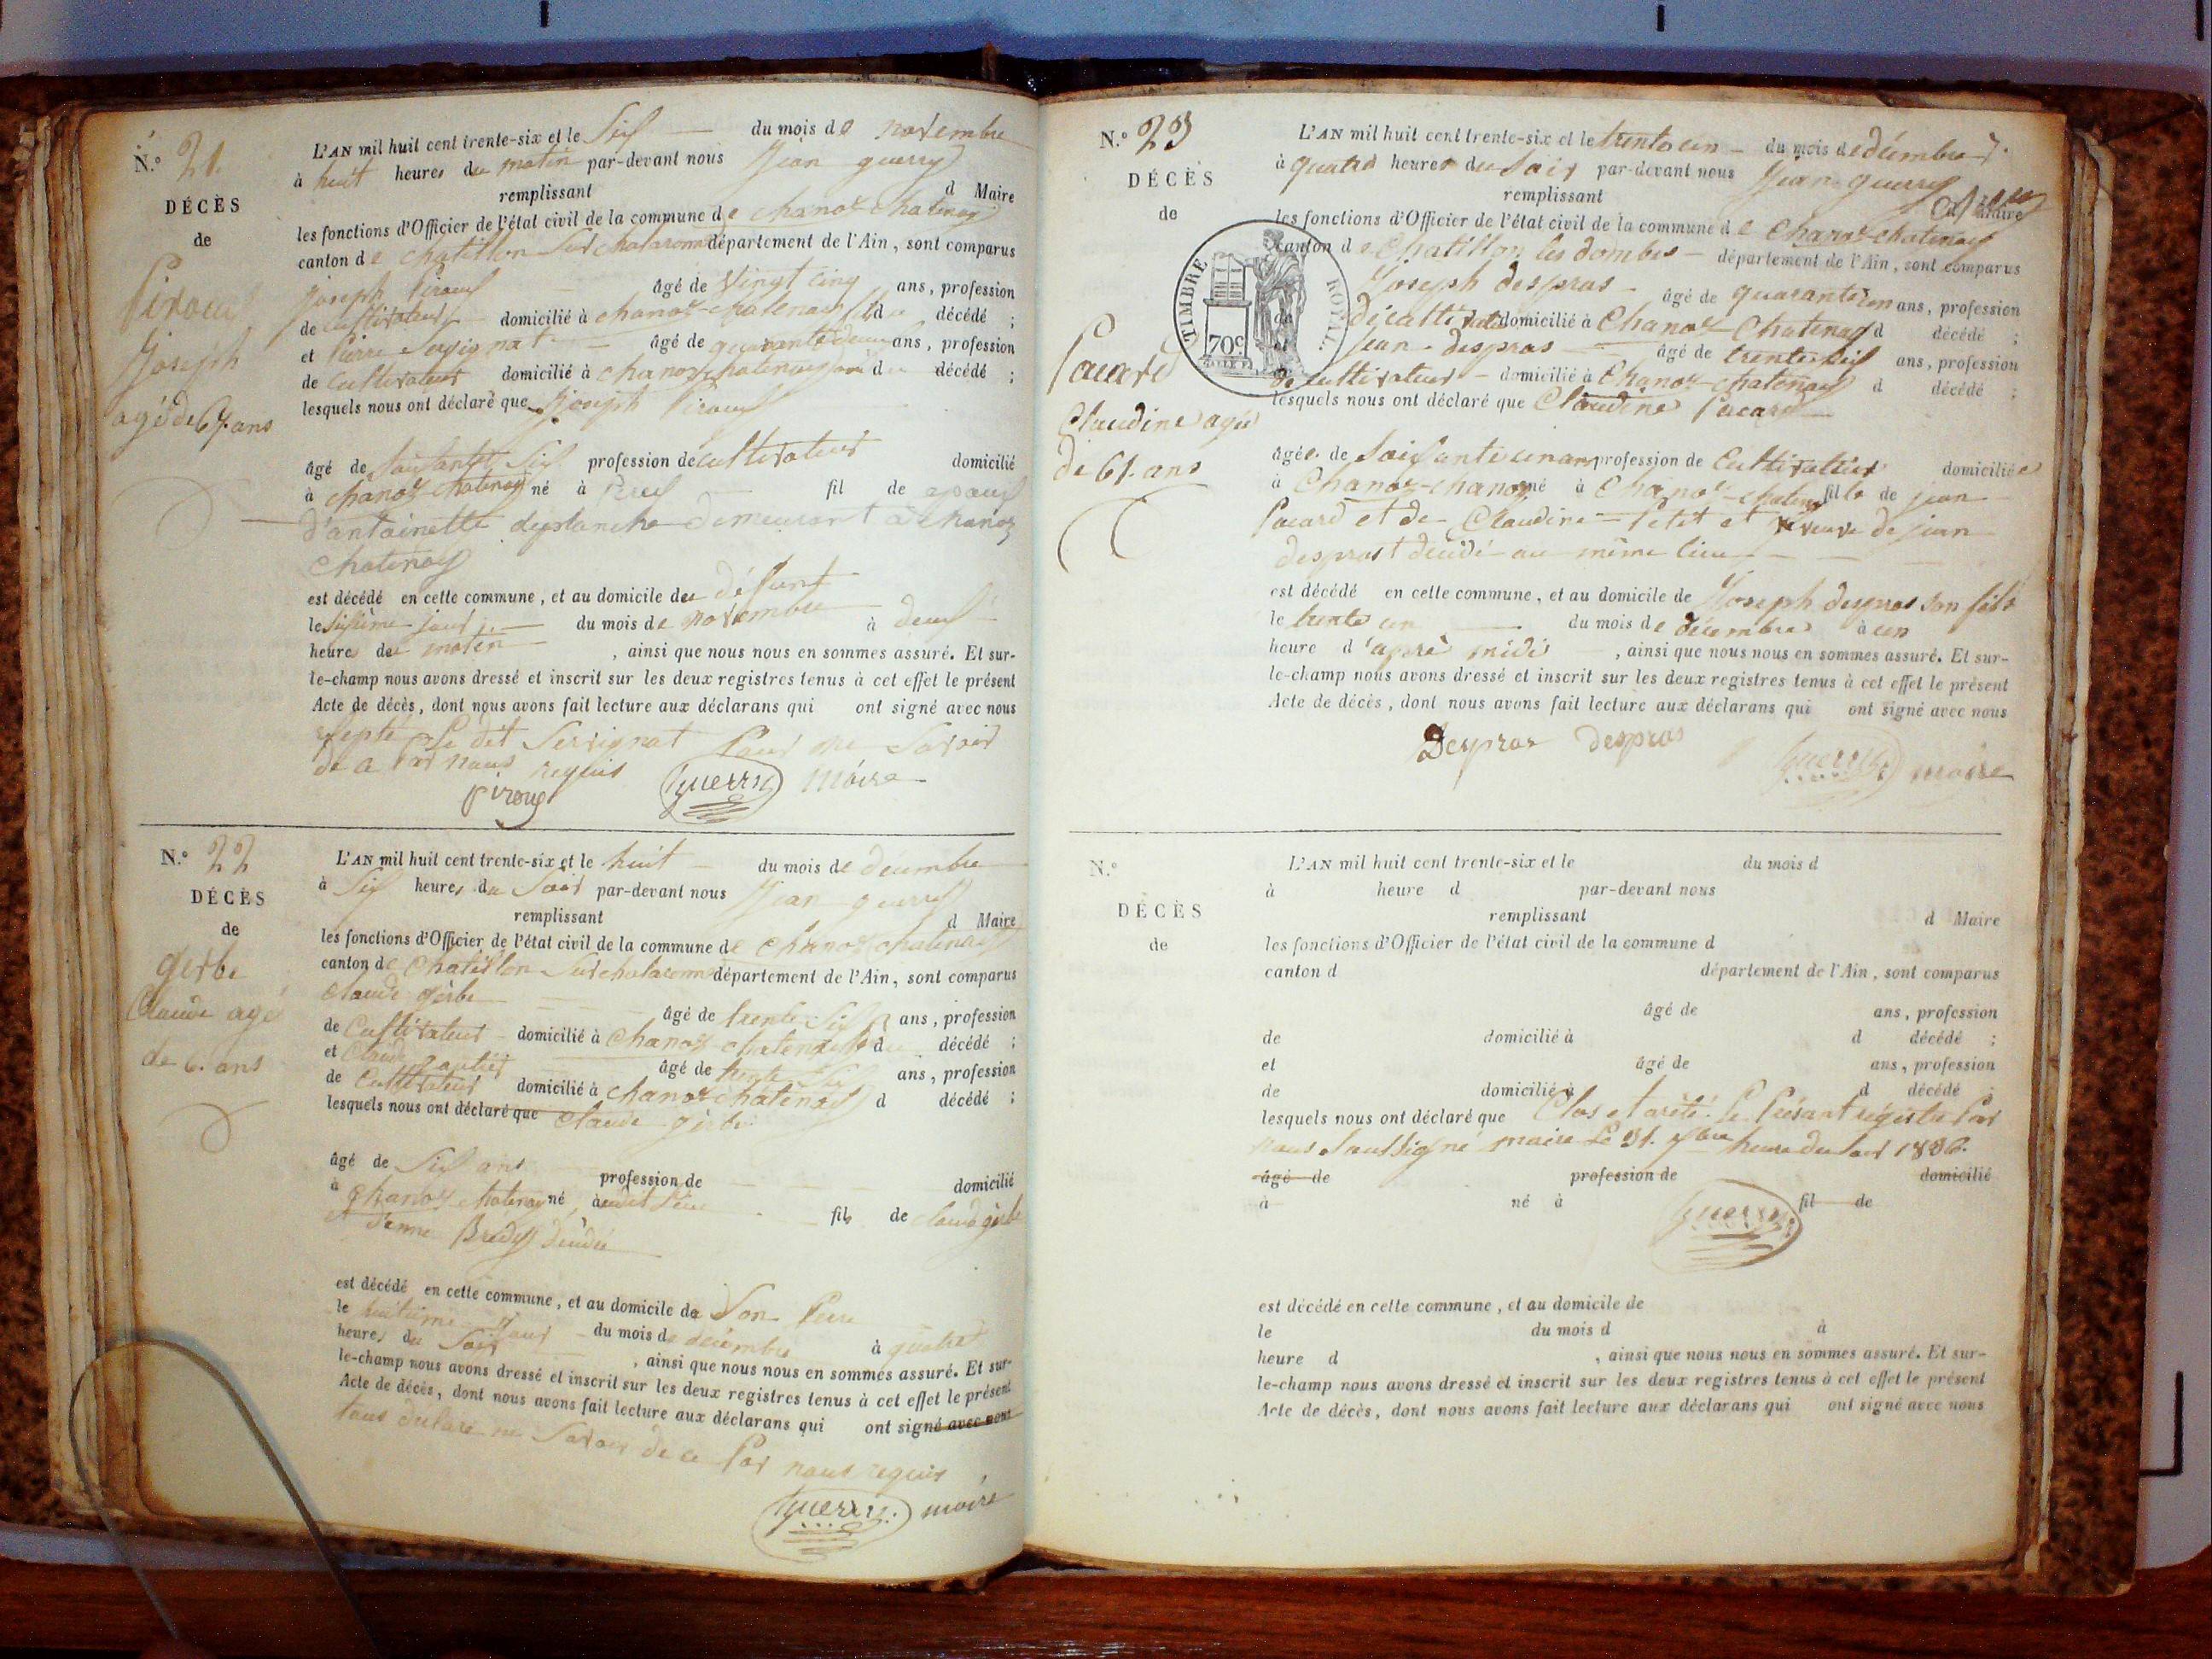 N.º 21.
DÉCÈS
de
Piroux
Joseph
agé de 67 ans
L'AN mil huit cent trente-six et le Six du mois de novembre
à huit heures du matin par-devant nous Jean guerry
remplissant d Maire
les fonctions d'Officier de l'état civil de la commune de chanoz chatenay
canton de chatillon Sur chalaronne département de l'Ain, sont comparus
Joseph Piroux âgé de Vingt cinq ans, profession
de cultivateur domicilié à chanoz-chatenay du décédé ;
et Pierre Servignat âgé de quarante deux ans, profession
de Cultivateur domicilié à chanoz chatenay du décédé ;
lesquels nous ont déclaré que Joseph Piroux
âgé de profession de cultivateur domicilié
à chanoz chatenay né à fil de epoux
d'antoinette desplanche demeurant à chanoz
chatenay
est décédé en cette commune, et au domicile du défunt
le Sixième jour du mois de novembre à deux
heures du matin , ainsi que nous nous en sommes assuré. Et sur-
le-champ nous avons dressé et inscrit sur les deux registres tenus à cet effet le présent
Acte de décès, dont nous avons fait lecture aux déclarans qui ont signé avec nous
Le dit Servignat Pour ne Savoir
de a Par nous requis
Piroux guerry maire
N.º 22
DÉCÈS
de
gerbe
Claude agé
de 6. ans
L'AN mil huit cent trente-six et le huit du mois de décembre
à Six heures du Soir par-devant nous Jean guerry
remplissant d Maire
les fonctions d'Officier de l'état civil de la commune de chanoz chatenay
canton de Chatillon Sur chalaronne département de l'Ain, sont comparus
Claude gerbe âgé de trente Six ans, profession
de Cultivateur domicilié à Chanoz chatenay du décédé ;
et Claude âgé de trente Six ans, profession
de Cultivateur domicilié à chanoz chatenay d décédé ;
lesquels nous ont déclaré que Claude gerbe
âgé de Six ans profession de domicilié
à chanoz chatenay né audit lieu fils de claude gerbe
et d'anne décédé
est décédé en cette commune, et au domicile de Son Pere
le huitième jour du mois de décembre à quatre
heures du Soir , ainsi que nous nous en sommes assuré. Et sur-
le-champ nous avons dressé et inscrit sur les deux registres tenus à cet effet le présent
Acte de décès, dont nous avons fait lecture aux déclarans qui ont signé avec nous
tous déclaré ne Savoir de ce Par nous requis
guerry maire
N.º 23
DÉCÈS
de
Pacard
Claudine agée
de 61. ans
TIMBRE ROYAL
70c
L'AN mil huit cent trente-six et le trente un du mois de décembre
à quatre heures du Soir par-devant nous Jean guerry
remplissant Maire
les fonctions d'Officier de l'état civil de la commune de Chanoz-chatenay
canton de Chatillon les dombes département de l'Ain, sont comparus
Joseph despras âgé de quarante un ans, profession
de domicilié à Chanoz Chatenay d décédé ;
et Jean despras âgé de trente six ans, profession
de cultivateur domicilié à Chanoz-chatenay d décédé ;
lesquels nous ont déclaré que Claudine Pacard
âgée de Soixante un ans profession de Cultivateur domiciliée
à Chanoz-chanoz né à Chanoz-chatenay fille de jean
Pacard et de Claudine Petit et veuve de jean
desprast décédé au même lieu
est décédé en cette commune, et au domicile de Joseph despras son fils
le trente un du mois de décembre à un
heure d'après midi , ainsi que nous nous en sommes assuré. Et sur-
le-champ nous avons dressé et inscrit sur les deux registres tenus à cet effet le présent
Acte de décès, dont nous avons fait lecture aux déclarans qui ont signé avec nous
Despras despras guerry maire
N.º
DÉCÈS
de
L'AN mil huit cent trente-six et le du mois d
à heure d par-devant nous
remplissant d Maire
les fonctions d'Officier de l'état civil de la commune d
canton d département de l'Ain, sont comparus
âgé de ans, profession
de domicilié à d décédé ;
et âgé de ans, profession
de domicilié à d décédé ;
lesquels nous ont déclaré que Clos et arêté Le Présant régistre Par
nous Soussigné maire Le 31. heure du soir 1836.
âgé de profession de domicilié
à né à fil de
guerry
est décédé en cette commune, et au domicile de
le du mois d à
heure d , ainsi que nous nous en sommes assuré. Et sur-
le-champ nous avons dressé et inscrit sur les deux registres tenus à cet effet le présent
Acte de décès, dont nous avons fait lecture aux déclarans qui ont signé avec nous